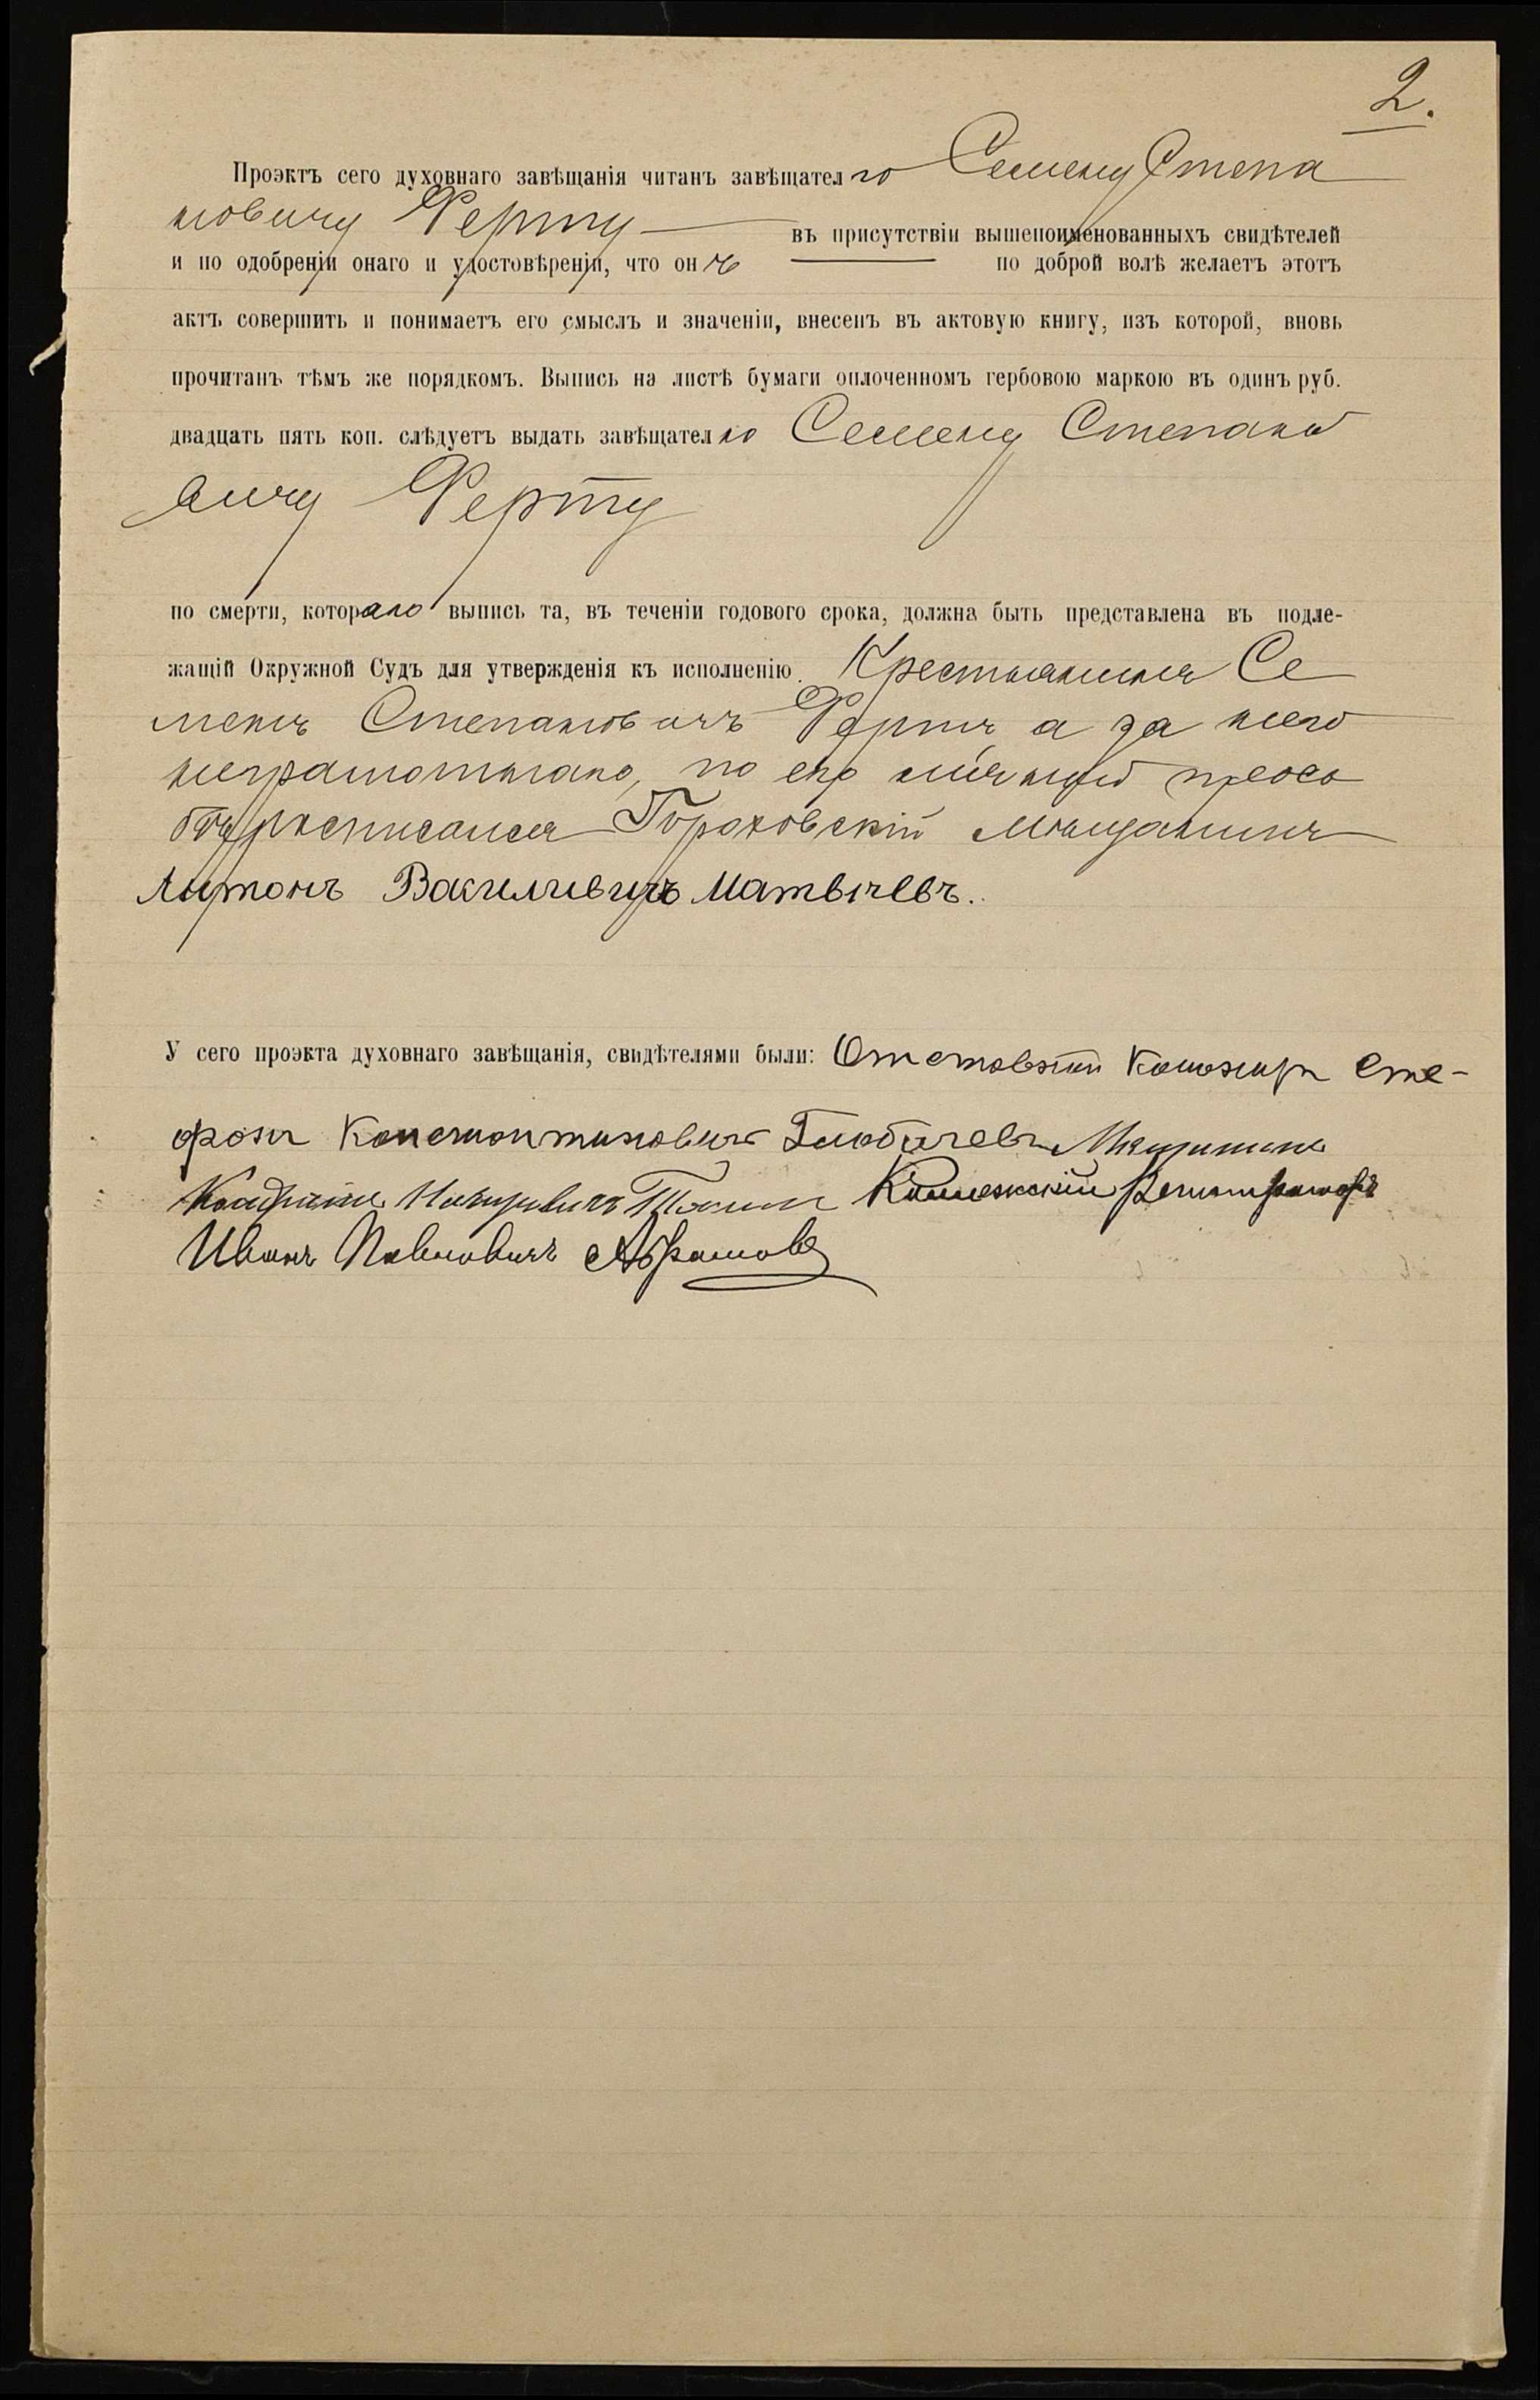 2.
Проэктъ сего духовнаго завѣщанія читанъ завѣщателю Семену Степа
новичу Ферту въ присутствіи вышепоименованныхъ свидѣтелей
и по одобреніи онаго и удостовѣреніи, что онъ по доброй волѣ желаетъ этотъ
актъ совершить и понимаетъ его смыслъ и значеніи, внесенъ въ актовую книгу, изъ которой, вновь
прочитанъ тѣмъ же порядкомъ. Выпись на листѣ бумаги оплоченномъ гербовою маркою въ одинъ руб.
двадцать пять коп. слѣдуетъ выдать завѣщателю Семену Степано
вичу Ферту
по смерти, котораго выпись та, въ теченіи годового срока, должна быть представлена въ подле-
жащій Окружной Судъ для утвержденія къ исполненію. Крестьянинъ Се
менъ Степановичъ Фертъ а за него
неграмотнаго, по его личной прось
бѣ росписался Гороховскій мѣщанинъ
Антонъ Василиевичъ Матвѣевъ.
У сего проэкта духовнаго завѣщанія, свидѣтелями были: Сте-
фанъ Константиновичъ Мѣщанинъ
Регистраторъ
Иванъ Павловичъ Абрамовъ